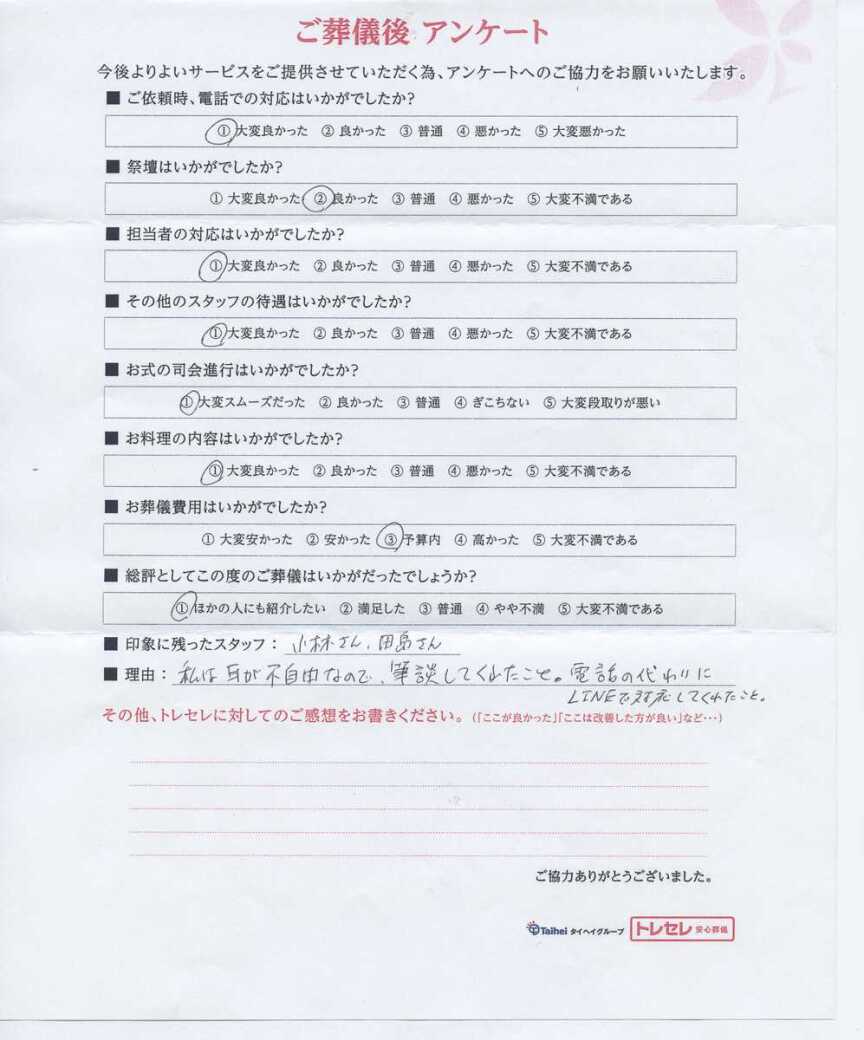 ご葬儀後 アンケート
今後よりよいサービスをご提供させていただく為、アンケートへのご協力をお願いいたします。
■ ご依頼時、電話での対応はいかがでしたか?
① 大変良かった ② 良かった ③ 普通 ④ 悪かった ⑤ 大変悪かった
■ 祭壇はいかがでしたか?
① 大変良かった ② 良かった ③ 普通 ④ 悪かった ⑤ 大変不満である
■ 担当者の対応はいかがでしたか?
① 大変良かった ② 良かった ③ 普通 ④ 悪かった ⑤ 大変不満である
■ その他のスタッフの待遇はいかがでしたか?
① 大変良かった ② 良かった ③ 普通 ④ 悪かった ⑤ 大変不満である
■ お式の司会進行はいかがでしたか?
① 大変スムーズだった ② 良かった ③ 普通 ④ ぎこちない ⑤ 大変段取りが悪い
■ お料理の内容はいかがでしたか?
① 大変良かった ② 良かった ③ 普通 ④ 悪かった ⑤ 大変不満である
■ お葬儀費用はいかがでしたか?
① 大変安かった ② 安かった ③ 予算内 ④ 高かった ⑤ 大変不満である
■ 総評としてこの度のご葬儀はいかがだったでしょうか?
① ほかの人にも紹介したい ② 満足した ③ 普通 ④ やや不満 ⑤ 大変不満である
■ 印象に残ったスタッフ： 小林さん、田島さん
■ 理由： 私は耳が不自由なので、筆談してくれたこと。電話の代わりに
LINEで対応してくれたこと。
その他、トレセレに対してのご感想をお書きください。(「ここが良かった」「ここは改善した方が良い」など・・・)
ご協力ありがとうございました。
Taihei タイヘイグループ トレセレ 安心葬儀